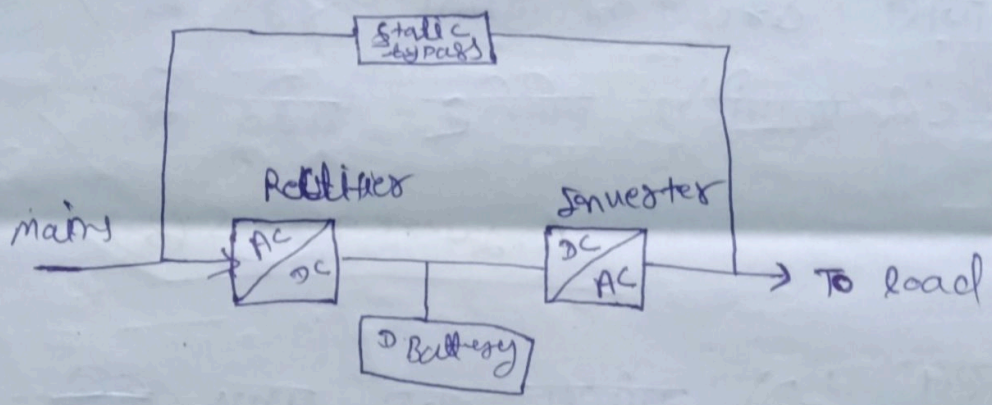 Static
bypass
Rectifier
Inverter
Mains
AC
DC
DC
AC
To load
D Battery